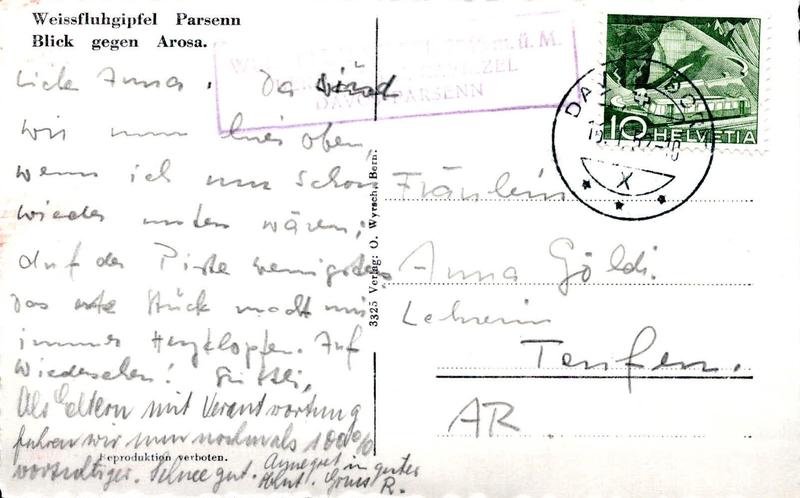 Weissfluhgipfel Parsenn
Blick gegen Arosa.
ü. M.
DAVOS-PARSENN
10 HELVETIA
DAVOS DORF
X
Liebe Anna, Da sind
wir nun hier oben,
wenn ich nur schon
wieder unten wäre;
Auf der Piste wenigstens
das erste Stück macht mir
immer Herzklopfen. Auf
Wiedersehen!
Als Eltern mit Verantwortung
fahren wir nun nochmals 100%
vorsichtiger. Schnee gut. Annegret in guter
Gruss R.
Reproduktion verboten.
3325 Verlag: O. Wyrsch, Bern:
Fräulein
Anna Göldi.
Lehrerin
Teufen.
AR